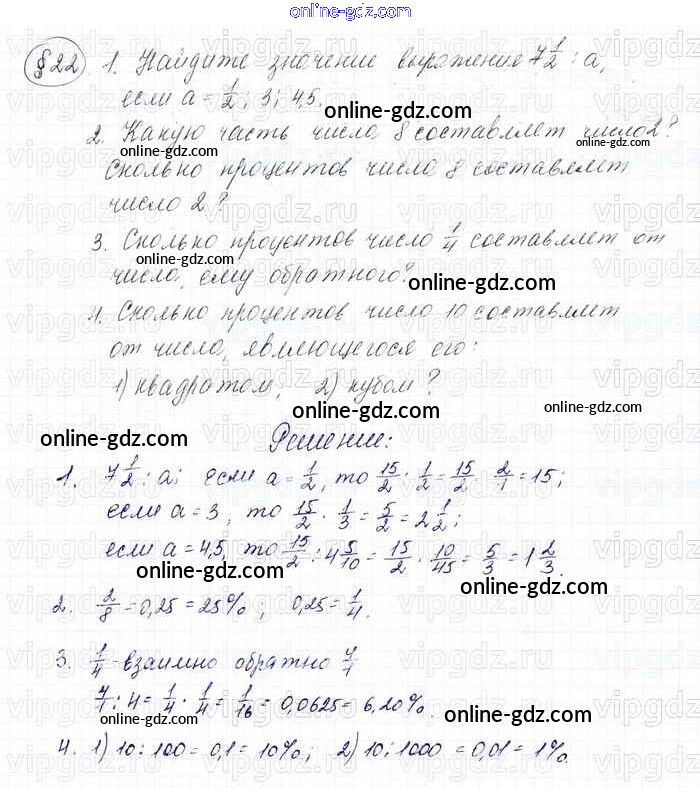 online-gdz.com
§22 1. Найдите значение выражения 7 1/2 : a,
если a = 1/2; 3; 4,5.
online-gdz.com
2. Какую часть числа 8 составляет число 2?
online-gdz.com
Сколько процентов числа 8 составляет
online-gdz.com
число 2?
3. Сколько процентов число 1/4 составляет от
online-gdz.com
числа, ему обратного?
online-gdz.com
4. Сколько процентов число 10 составляет
от числа, являющегося его:
1) квадратом, 2) кубом?
online-gdz.com
online-gdz.com
online-gdz.com
Решение:
1. 7 1/2 : a; если a = 1/2, то 15/2 : 1/2 = 15/2 · 2/1 = 15;
если a = 3, то 15/2 · 1/3 = 5/2 = 2 1/2;
если a = 4,5, то 15/2 : 4 5/10 = 15/2 · 10/45 = 5/3 = 1 2/3.
online-gdz.com
online-gdz.com
2. 2/8 = 0,25 = 25%; 0,25 = 1/4.
online-gdz.com
online-gdz.com
3. 1/4 взаимно обратно 4/1
4/1 : 4 = 1/4 · 1/4 = 1/16 = 0,0625 = 6,20%.
online-gdz.com
online-gdz.com
4. 1) 10 : 100 = 0,1 = 10%; 2) 10 : 1000 = 0,01 = 1%.
online-gdz.com